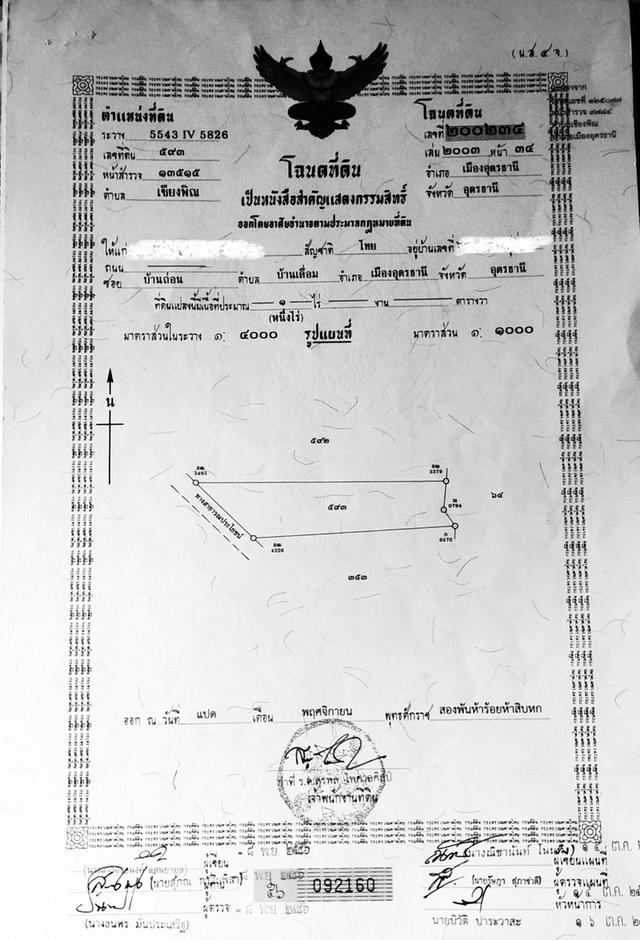 (น.ส.๔ จ.)
ตำแหน่งที่ดิน
ระวาง 5543 IV 5826
เลขที่ดิน ๕๙๓
หน้าสำรวจ ๑๓๕๑๕
ตำบล เชียงพิณ
โฉนดที่ดิน
เลขที่ ๒๐๐๒๓๔
เล่ม ๒๐๐๓ หน้า ๓๔
อำเภอ เมืองอุดรธานี
จังหวัด อุดรธานี
โฉนดที่ดิน
เป็นหนังสือสำคัญแสดงกรรมสิทธิ์
ออกโดยอาศัยอำนาจตามประมวลกฎหมายที่ดิน
ให้แก่ สัญชาติ ไทย อยู่บ้านเลขที่
ถนน
ซอย บ้านถ่อน ตำบล บ้านเลื่อม อำเภอ เมืองอุดรธานี จังหวัด อุดรธานี
ที่ดินแปลงนี้มีเนื้อที่ประมาณ ๑ ไร่ งาน ตารางวา
(หนึ่งไร่)
มาตราส่วนในระวาง ๑: ๔๐๐๐ รูปแผนที่ มาตราส่วน ๑: ๑๐๐๐
น
๕๙๒
3493
3379
๕๙๓
น
0794
๖๔
ทางสาธารณประโยชน์
4328
6570
๓๕๓
ออก ณ วันที่ แปด เดือน พฤศจิกายน พุทธศักราช สองพันห้าร้อยห้าสิบหก
เจ้าพนักงานที่ดิน
ผู้เขียน
ผู้ตรวจ
092160
ผู้เขียนแผนที่
ผู้ตรวจแผนที่
หัวหน้าการ
(นางอนพร มั่นประเสริฐ)
นายนิวัติ ปาระวาสะ